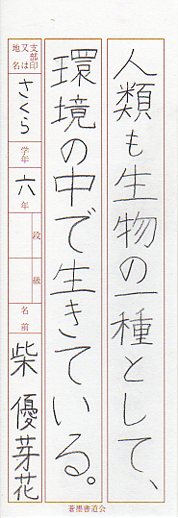 人類も生物の一種として、
環境の中で生きている。
支部印又は地名
さくら
学年
六年
段
級
名前
柴優芽花
蒼墨書道会